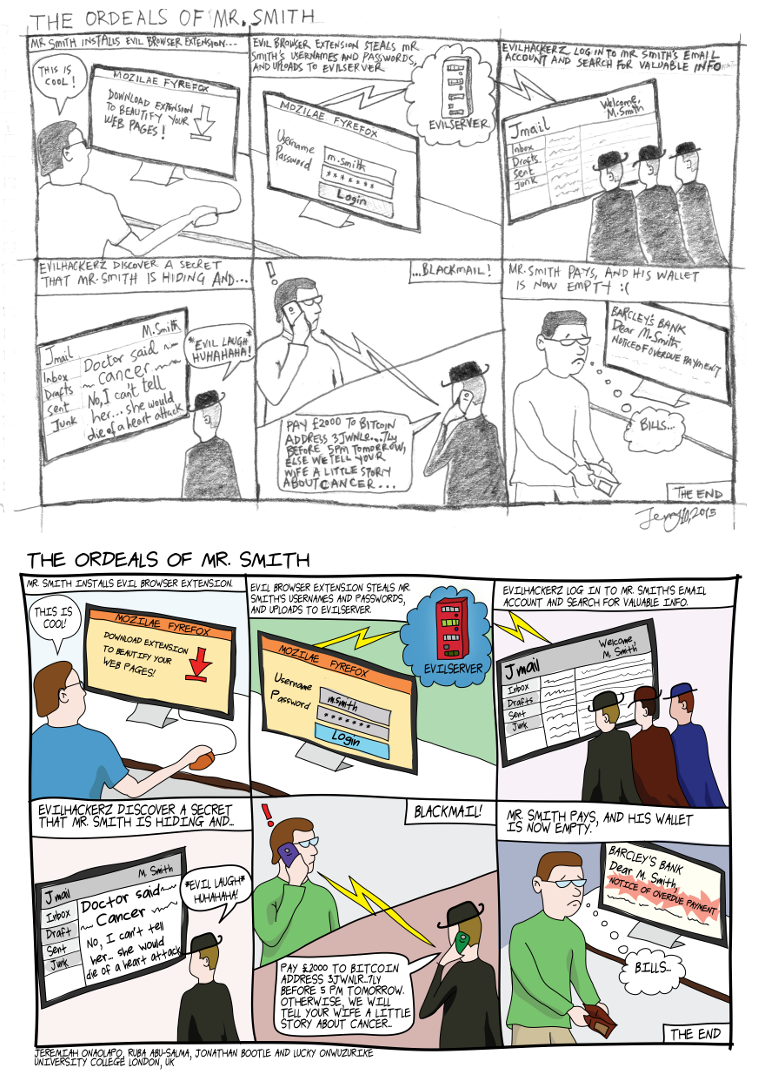 THE ORDEALS OF MR. SMITH
MR. SMITH INSTALLS EVIL BROWSER EXTENSION...
THIS IS
COOL!
MOZILAE FYREFOX
DOWNLOAD EXTENSION
TO BEAUTIFY YOUR
WEB PAGES!
EVIL BROWSER EXTENSION STEALS MR.
SMITH'S USERNAMES AND PASSWORDS,
AND UPLOADS TO EVILSERVER
EVILSERVER
MOZILAE FYREFOX
Username
m.smith
Password
*******
Login
EVILHACKERZ LOG IN TO MR SMITH'S EMAIL
ACCOUNT AND SEARCH FOR VALUABLE INFO
Jmail
Welcome,
M.Smith
Inbox
Drafts
Sent
Junk
EVILHACKERZ DISCOVER A SECRET
THAT MR. SMITH IS HIDING AND...
M.Smith
Jmail
Inbox
Drafts
Sent
Junk
Doctor said
cancer
No, I can't tell
her... she would
die of a heart attack
*EVIL LAUGH*
HUHAHAHA!
!
...BLACKMAIL!
PAY £2000 TO BITCOIN
ADDRESS 3JWNLR...7LY
BEFORE 5PM TOMORROW,
ELSE WE TELL YOUR
WIFE A LITTLE STORY
ABOUT CANCER...
MR. SMITH PAYS, AND HIS WALLET
IS NOW EMPTY :(
BARCLEY'S BANK
Dear M. Smith,
NOTICE OF OVERDUE PAYMENT
BILLS...
THE END
THE ORDEALS OF MR. SMITH
MR. SMITH INSTALLS EVIL BROWSER EXTENSION.
THIS IS
COOL!
MOZILAE FYREFOX
DOWNLOAD EXTENSION
TO BEAUTIFY YOUR
WEB PAGES!
EVIL BROWSER EXTENSION STEALS MR.
SMITH'S USERNAMES AND PASSWORDS,
AND UPLOADS TO EVILSERVER.
EVILSERVER
MOZILAE FYREFOX
Username
m.smith
Password
*******
Login
EVILHACKERZ LOG IN TO MR. SMITH'S EMAIL
ACCOUNT AND SEARCH FOR VALUABLE INFO.
Jmail
Welcome,
M. Smith
Inbox
Drafts
Sent
Junk
EVILHACKERZ DISCOVER A SECRET
THAT MR. SMITH IS HIDING AND...
M. Smith
Jmail
Inbox
Draft
Sent
Junk
Doctor said
Cancer
No, I can't tell
her... she would
die of a heart attack
*EVIL LAUGH*
HUHAHAHA!
!
BLACKMAIL!
PAY £2000 TO BITCOIN
ADDRESS 3JWNLR...7LY
BEFORE 5 PM TOMORROW.
OTHERWISE, WE WILL
TELL YOUR WIFE A LITTLE
STORY ABOUT CANCER...
MR. SMITH PAYS, AND HIS WALLET
IS NOW EMPTY.
BARCLEY'S BANK
Dear M. Smith,
NOTICE OF OVERDUE PAYMENT
BILLS...
THE END
JEREMIAH ONAOLAPO, RUBA ABU-SALMA, JONATHAN BOOTLE AND LUCKY ONWUZURIKE
UNIVERSITY COLLEGE LONDON, UK